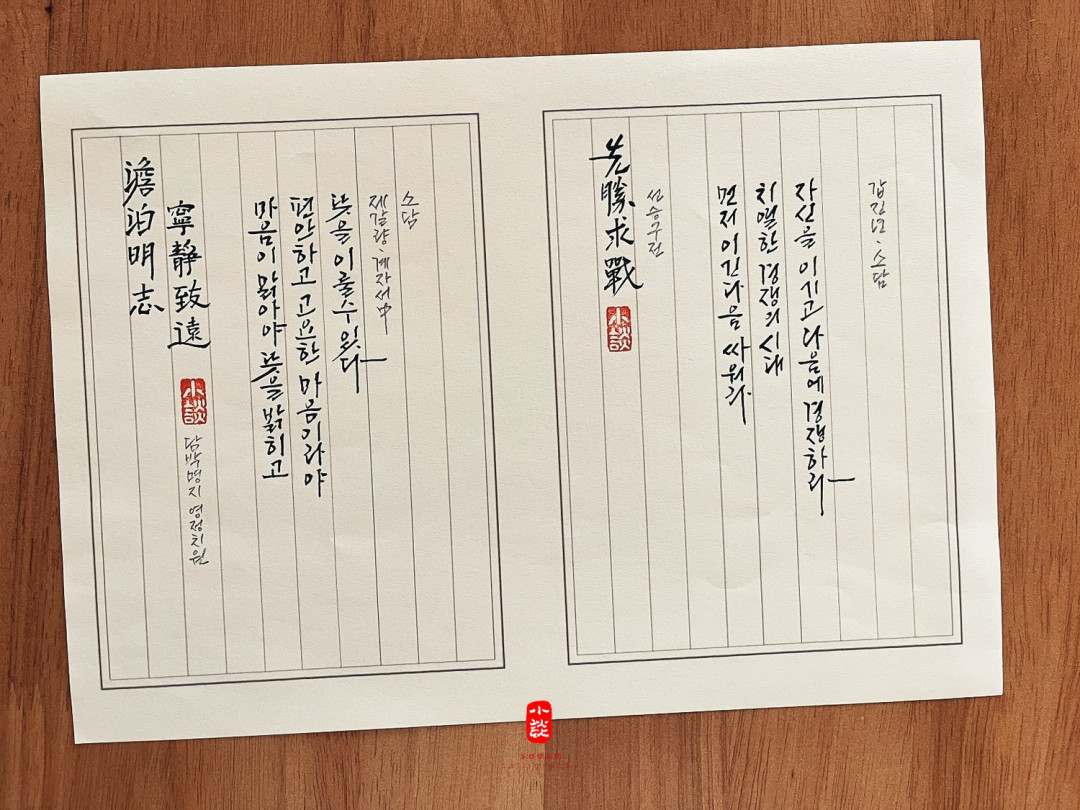 澹泊明志
寧静致遠
小談
담박명지 영정치원
마음이 맑아야 뜻을 밝히고
편안하고 고요한 마음이라야
뜻을 이룰 수 있다
제갈량, 계자서 中
소담
先勝求戰
小談
선승구전
먼저 이긴 다음 싸워라
치열한 경쟁의 시대
자신을 이기고 다음에 경쟁하라
갑진년, 소담
小談